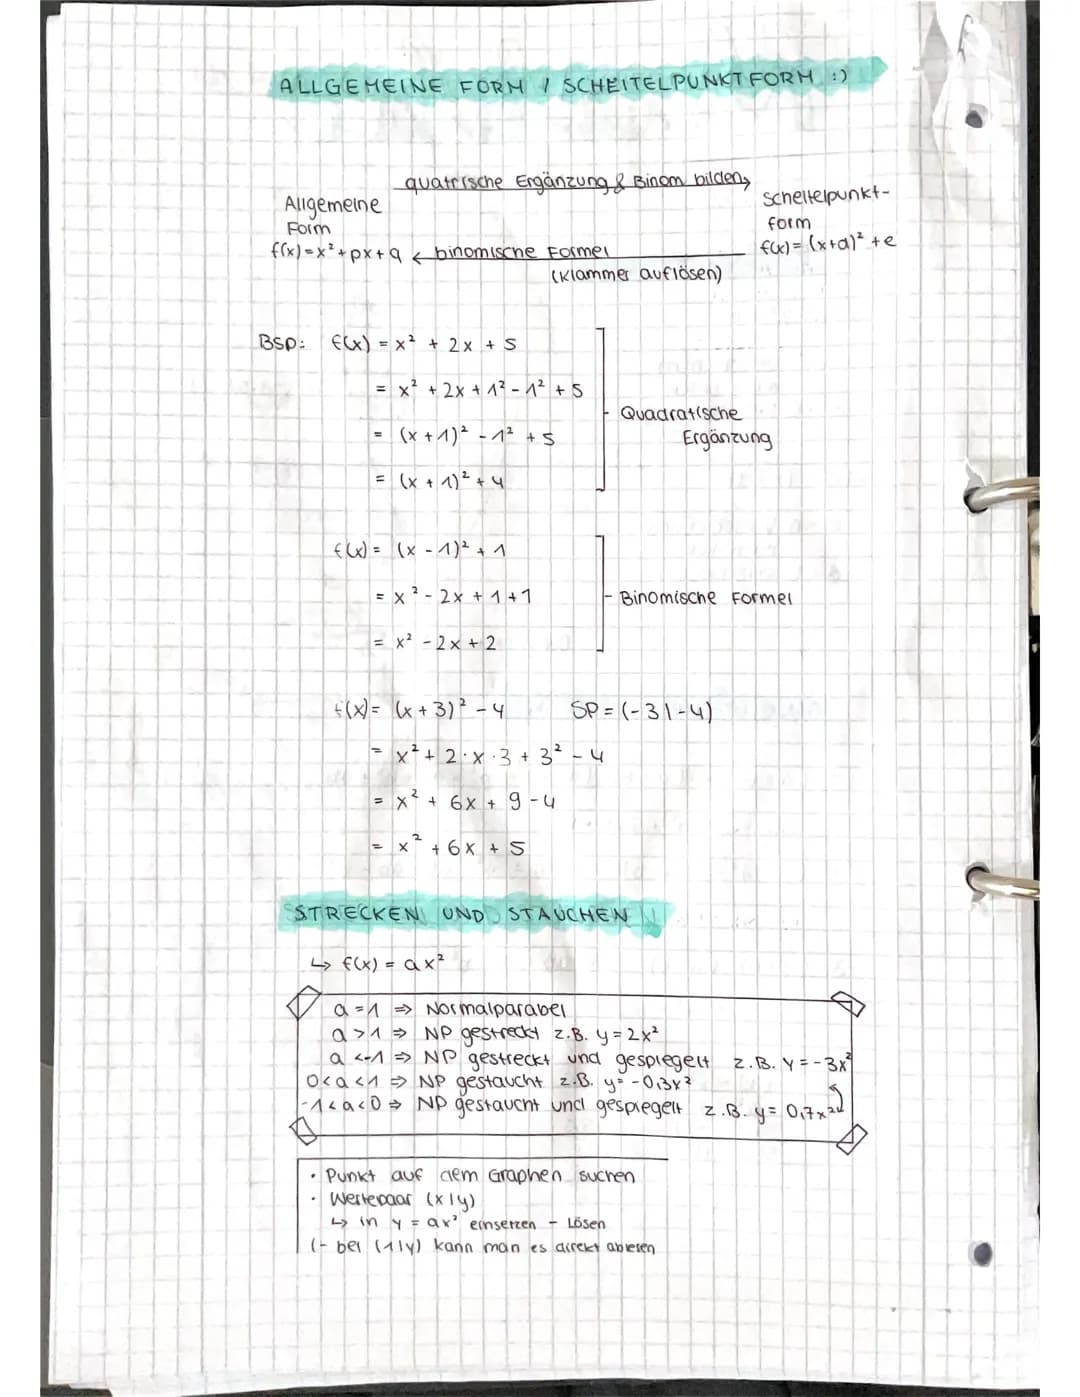 ALLGEMEINE FORM / SCHEITELPUNKTFORM :)
quatrische Ergänzung & Binom bilden
Allgemeine
Form
f(x)=x²+px+q binomische Formel
(Klammer auflösen)
Scheitelpunkt-
form
f(x)= (x+a)² +e
Bsp: f(x) = x² + 2x + 5
= x² + 2x + 1² - 1² + 5
= (x + 1)² - 1² + 5
= (x + 1)² + 4
Quadratische
Ergänzung
f(x) = (x - 1)² + 1
= x² - 2x + 1 + 1
= x² - 2x + 2
Binomische Formel
f(x)= (x + 3)² - 4 SP = (-3|-4)
= x² + 2·x·3 + 3² - 4
= x² + 6x + 9 - 4
= x² + 6x + 5
STRECKEN UND STAUCHEN
↳ f(x) = ax²
a = 1 ⇒ Normalparabel
a > 1 ⇒ NP gestreckt z.B. y = 2x²
a <-1 ⇒ NP gestreckt und gespiegelt z.B. y = -3x²
0<a<1 ⇒ NP gestaucht z.B. y = -0,3x²
-1<a<0 ⇒ NP gestaucht und gespiegelt z.B. y = 0,7x²
• Punkt auf dem Graphen suchen
• Wertepaar (x|y)
↳ in y = ax² einsetzen - Lösen
(- bei (1|y) kann man es direkt ablesen